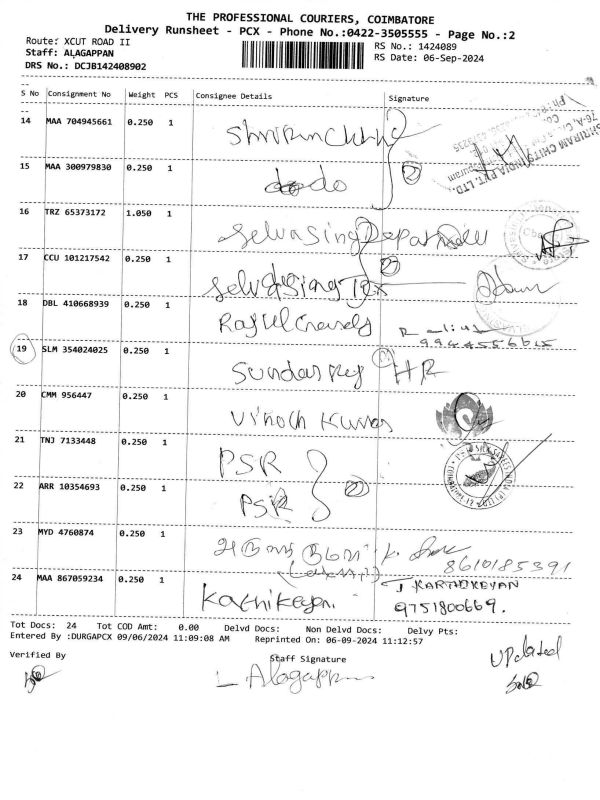 THE PROFESSIONAL COURIERS, COIMBATORE
Delivery Runsheet - PCX - Phone No.:0422-3505555 - Page No.:2
Route: XCUT ROAD II
RS No.: 1424089
Staff: ALAGAPPAN
RS Date: 06-Sep-2024
DRS No.: DCJB142408902
S No Consignment No Weight PCS Consignee Details Signature
14 MAA 704945661 0.250 1
SHRIRAM CHITS INDIA PVT. LTD.
15 MAA 300979830 0.250 1 do do
16 TRZ 65373172 1.050 1 Selvasing
17 CCU 101217542 0.250 1 Selvasing Tex
18 DBL 410668939 0.250 1
19 SLM 354024025 0.250 1 HR
20 CMM 956447 0.250 1 Vinoth Kumar
21 TNJ 7133448 0.250 1 PSR
22 ARR 10354693 0.250 1 PSR
23 MYD 4760874 0.250 1 K. 8610185391
24 MAA 867059234 0.250 1 Karthikeyan. J KARTHIKEYAN
9751800669.
Tot Docs: 24 Tot COD Amt: 0.00 Delvd Docs: Non Delvd Docs: Delvy Pts:
Entered By :DURGAPCX 09/06/2024 11:09:08 AM Reprinted On: 06-09-2024 11:12:57
Verified By
Staff Signature
L Alagappan
Updated